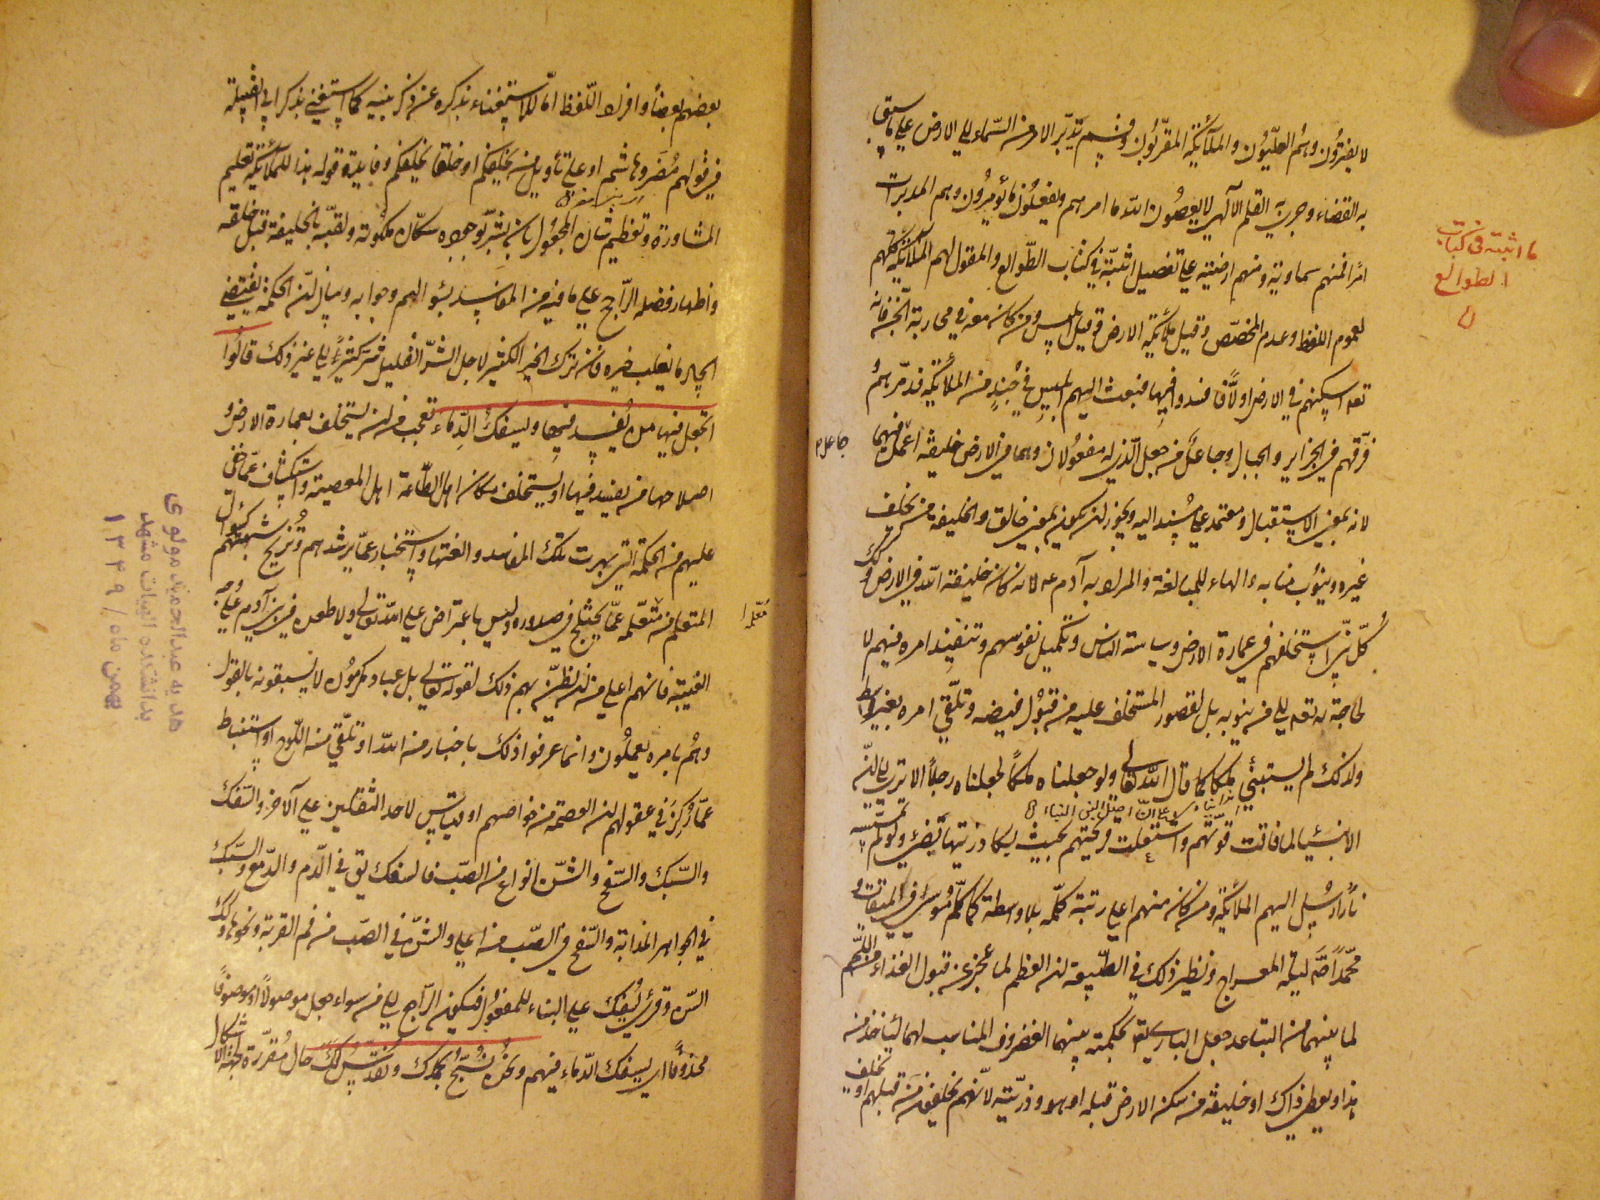 لا يفترون وهم العليون والملائكة المقربون وقسم يدبر الامر من السماء الى الارض على ما سبق
به القضاء وجرى به القلم الالهي لا يعصون الله ما امرهم ويفعلون ما يؤمرون وهم المدبرات
امرا فمنهم سماوية ومنهم ارضية على تفصيل اثبته في كتاب الطوالع والمقول لهم الملائكة كلهم
لعموم اللفظ وعدم المخصص وقيل ملائكة الارض وقيل ابليس ومن كان معه في محاربة الجن فانه
تعه اسكنهم في الارض اولا فافسدوا فيها فبعث اليهم ابليس في جند من الملائكة فدمرهم
فرقهم في الجزاير والجبال وجاعل من جعل الذي له مفعولان وهما في الارض خليفة اعمل فيهما
لانه بمعنى الاستقبال ومعتمد على مسند اليه ويجوز ان يكون بمعنى خالق والخليفة من يخلف
غيره وينوب منابه والهاء للمبالغة والمراد به آدم عم لانه كان خليفة الله في الارض وكذلك
كل نبي استخلفهم في عمارة الارض وسياسة الناس وتكميل نفوسهم وتنفيذ امره فيهم لا
لحاجة به تعه الى من ينوبه بل لقصور المستخلف عليه من قبول فيضه وتلقي امره بغير وسط
ولذلك لم يستنبئ ملكا كما قال الله تعالى ولو جعلناه ملكا لجعلناه رجلا الا ترى ان
الانبياء لما فاقت قوتهم واشتعلت قريحتهم بحيث يكاد زيتها يضئ ولو لم تمسسه
نار ارسل اليهم الملائكة ومن كان منهم اعلى رتبة كلمه بلا واسطة كما كلم موسى في الميقات و
محمدا صه ليلة المعراج ونظير ذلك في الطبيعة ان العظم لما عجز عن قبول الغذاء من اللحم
لما بينهما من التباعد جعل الباري تعه بحكمته بينهما الغضروف المناسب لهما ليأخذ من
هذا ويعطي ذاك او خليفة من سكن الارض قبله او هو وذريته لانهم يخلفون من قبلهم او يخلف
ما اثبته في كتاب
الطوالع
جاعل
بعضهم بعضا وافراد اللفظ اما للاستغناء بذكره عن ذكر بنيه كما استغني بذكر ابي القبيلة
في قولهم مضر وهاشم او على تأويل من يخلفكم او خلقا يخلفكم وفايدة قوله هذا للملائكة تعليم
المشاورة وتعظيم شان المجعول بان بشر بوجوده سكان ملكوته ولقبه بالخليفة قبل خلقه
واظهار فضله الراجح على ما فيه من المفاسد بسوالهم وجوابه وبيان ان الحكمة تقتضي
ايجاد ما يغلب خيره فان ترك الخير الكثير لاجل الشر القليل شر كثير الى غير ذلك قالوا
اتجعل فيها من يفسد فيها ويسفك الدماء تعجب من ان يستخلف بعمارة الارض و
اصلاحها من يفسد فيها او يستخلف مكان اهل الطاعة اهل المعصية واستكشاف عما خفي
عليهم من الحكمة التي بهرت تلك المفاسد والغتها واستخبار عما يرشدهم ويزيح شبهتهم كسؤال
المتعلم من معلمه عما يختلج في صدوره وليس باعتراض على الله تعالى ولا طعن في بني آدم على وجه
الغيبة فانهم اعلى من ان يظن بهم ذلك لقوله تعالى بل عباد مكرمون لا يسبقونه بالقول
وهم بامره يعملون وانما عرفوا ذلك باخبار من الله او تلقي من اللوح او استنباط
عما ركز في عقولهم ان العصمة من خواصهم او قياس لاحد الثقلين على الآخر والسفك
والسبك والسفح والشن انواع من الصب فالسفك يق في الدم والدمع والسبك
في الجواهر المذابة والسفح في الصب من اعلى والشن في الصب من فم القربة ونحوها وكذلك
السن وقرئ يسفك على البناء للمفعول فيكون الراجع الى من سواء جعل موصولا او موصوفا
محذوفا اي يسفك الدماء فيهم ونحن نسبح بحمدك ونقدس لك حال مقررة لجهة الاشكال
معلم
هديه عبدالحميد مولوى
بدانشكده الهيات مشهد
بهمن ماه / ١٣٤٩